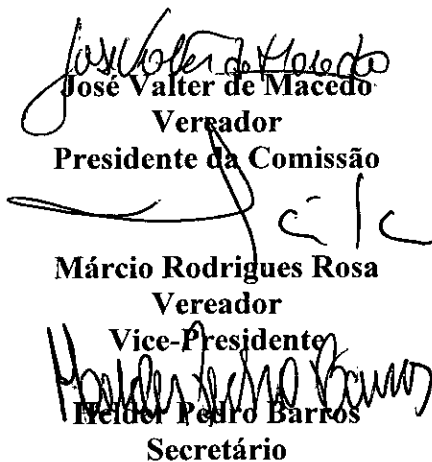 José Valter de Macedo
José Valter de Macedo
Vereador
Presidente da Comissão
Márcio Rodrigues Rosa
Vereador
Vice-Presidente
Helder Pedro Barros
Helder Pedro Barros
Secretário